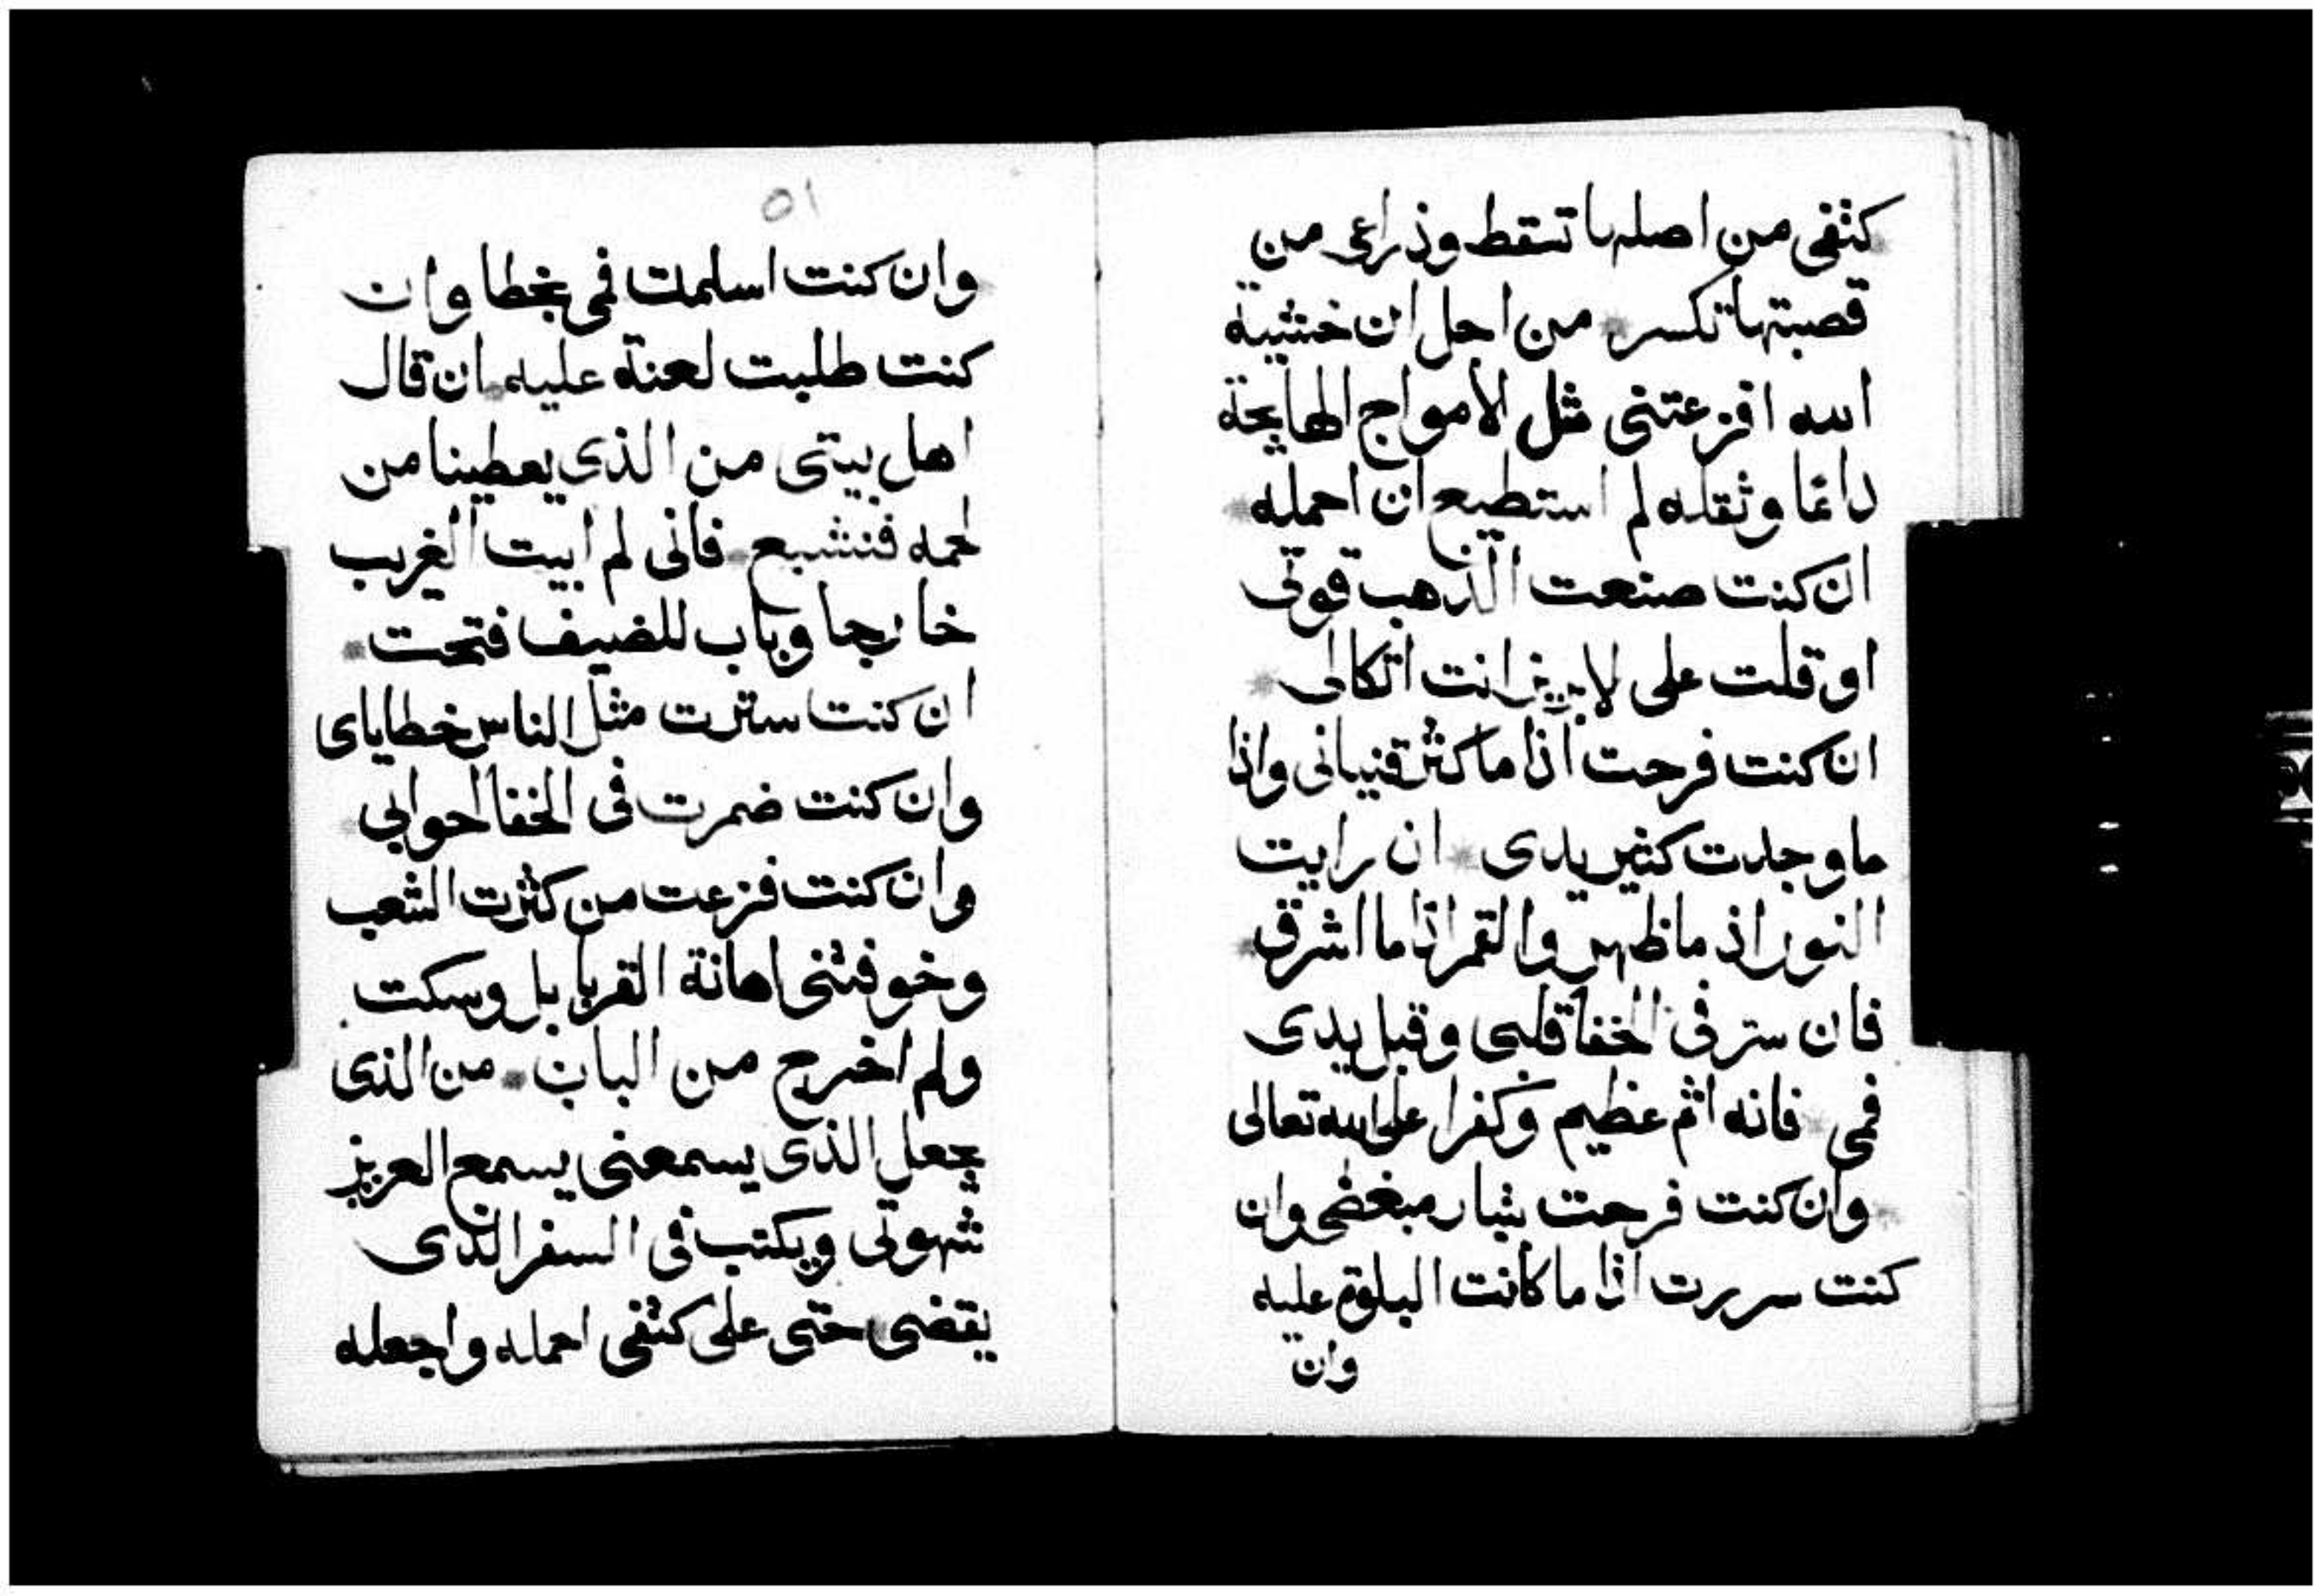 كتفى من اصلها تسقط وذراعى من
قصبتها تكسر من اجل ان خشية
الله افزعتنى مثل الامواج الهايجة
دائما وثقله لم استطيع ان احمله
ان كنت صنعت الذهب قوتى
او قلت على الابريز انت اتكالى
ان كنت فرحت اذا ما كثر قنيانى واذا
ما وجدت كثير يدى ان رايت
النور اذ ما ظهر والقمر اذا ما اشرق
فان ستر فى الخفا قلبى وقبل يدى
فمى فانه اثم عظيم وكفرا على الله تعالى
وان كنت فرحت بثبار مبغضى وان
كنت سررت اذا ما كانت البلوة عليه
وان
٥١
وان كنت اسلمت فمى بخطا وان
كنت طلبت لعنة عليه ان قال
اهل بيتى من الذى يعطينا من
لحمه فنشبع فانى لم ابيت الغريب
خارجا وباب للضيف فتحت
ان كنت سترت مثل الناس خطاياى
وان كنت ضمرت فى الخفا احوابى
وان كنت فزعت من كثرت الشعب
وخوفتنى اهانة القربا بل وسكت
ولم اخرج من الباب من الذى
يجعل الذى يسمعنى يسمع العزيز
شهوتى ويكتب فى السفر الذى
يقضى حتى على كتفى احمله واجعله